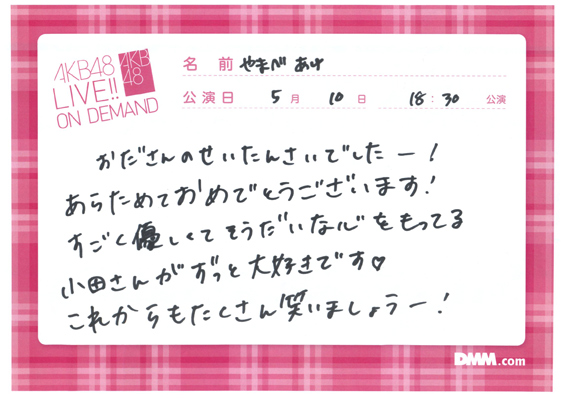 AKB48
LIVE!!
ON DEMAND
AKB
48
名 前 やまべ あゆ
公演日 5月 10日 18:30 公演
おださんのせいたんさいでしたー!
あらためておめでとうございます!
すごく優しくてそうだいな心をもってる
小田さんがずっと大好きです♡
これからもたくさん笑いましょうー!
DMM.com